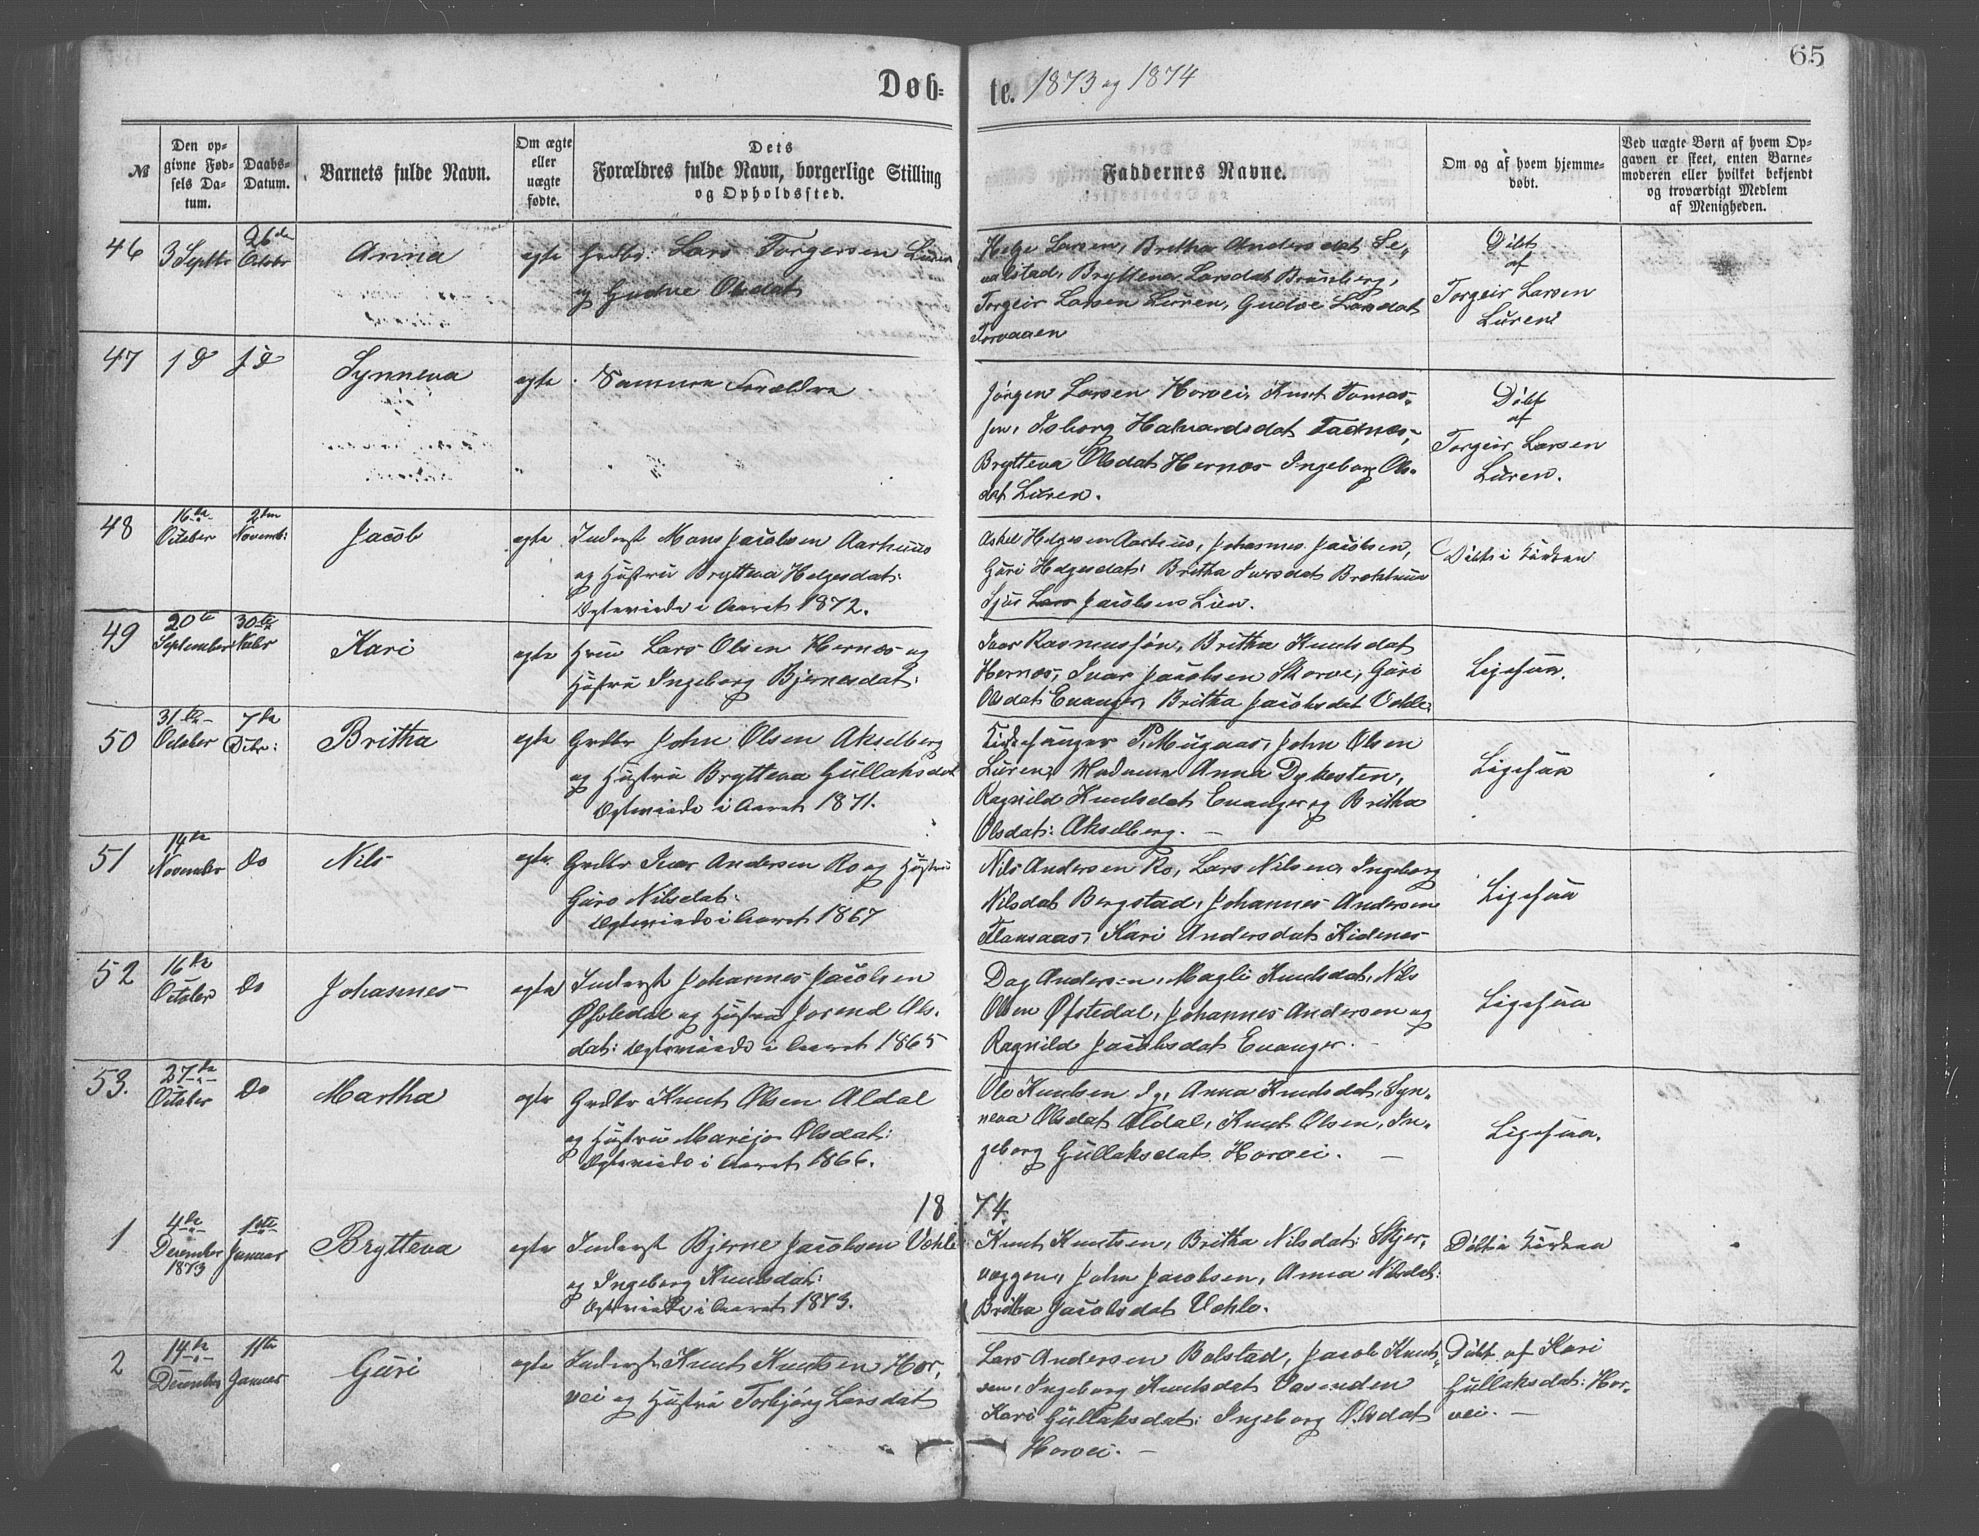 65
Døbte. 1873 og 1874
№
Den opgivne Fødsels Datum.
Daabs-Datum.
Barnets fulde Navn.
Om ægte eller uægte fødte.
Dets Forældres fulde Navn, borgerlige Stilling og Opholdssted.
Faddernes Navne.
Om og af hvem hjemmedøbt.
Ved uægte Børn af hvem Opgaven er skeet, enten Barnemoderen eller hvilket bekjendt og troværdigt Medlem af Menigheden.
46
3 Septbr
26de Octobr
Anna
egte
Grdbr: Lars Torgersen Lüren
og Gudve Olsdat
Helge Larsen, Britha Andersdat Se-
valstad, Brytteva Larsdat
Torgeir Larsen Lüren, Gudve Larsdat
Døbt
af
Torgeir Larsen
Lüren
47
1 D
Synneva
egte
Samme Forældre
Jørgen Larsen Horvei, Knut Tomas-
sen, Isborg Halvardsdat
Brytteva Olsdat Hernæs Ingeborg Ols-
dat Lüren.
Døbt
af
Torgeir Larsen
Lüren.
48
16de
October
2den
Novemb:
Jacob
egte
Inderst Mons Jacobsen Aarhuus
og Hustru Brytteva Helgesdat:
Egteviede i Aaret 1872.
Askel Helgesen Aarhus, Johannes Jacobsen,
Guri Helgesdat: Britha Ivarsdat Brekhuus
Sjur Lars Jacobsen Lien.
Døbt i Kirken
49
20de
September
30te
Novbr
Kari
egte
Lars Olsen Hernæs og
Hustru Ingeborg Bjernesdat:
Ivar Rasmussøn, Britha Knutsdat
Hernæs, Ivar Jacobsen Skorve, Guri
Olsdat Evanger, Britha Jacobsdat Væhle.
Ligesaa.
50
31te
October
7de
Decbr:
Britha
egte
Grdbr John Olsen Akselberg
og Hustru Brytteva Gullaksdat
Egteviede i Aaret 1871.
Kirkesanger P. Mugaas, John Olsen
Lüren, Madame Anna Dyhesten,
Ragnild Knutsdat Evanger og Britha
Olsdat: Akselberg. —
Ligesaa
51
14de
November
Do
Nils
egte
Grdbr Ivar Andersen Ro og Hustru
Guro Nilsdat:
Egteviede i Aaret 1867
Nils Andersen Ro, Lars Nilsen, Ingeborg
Nilsdat Bergstad, Johannes Andersen
Kari Andersdat
Ligesaa
52
16de
October
Do
Johannes
egte
Inderst Johannes Jacobsen
Øfstedal og Hustru Jorend Ols-
dat: Egteviede i Aaret 1865
Dag Andersen, Magli Knutsdat, Nils
Olsen Øfstedal, Johannes Andersen og
Ragnild Jacobsdat Evanger. —
Ligesaa
53.
27de
October
Do
Martha
egte
Grdbr Knut Olsen Aldal
og Hustru Marijo Olsdat:
Egteviede i Aaret 1866.
Ole Knutsen Anna Knutsdat, Syn-
neva Olsdat Aldal, Knut Olsen, In-
geborg Gullaksdat Horvei. —
Ligesaa.
1874.
1
4de
December
1873
1ste
Januar
Brytteva
egte
Inderst Bjerne Jacobsen Væhle
og Ingeborg Knutsdat:
Egteviede i Aaret 1873.
Knut Knutsen, Britha Nilsdat: Skjer-
veggen, John Jacobsen, Anna Nilsdat:
Britha Jacobsdat Væhle.
Døbt i Kirken
2
14de
December
11te
Januar
Guri
egte
Inderst Knut Knutsen Hor-
vei og Hustru Torbjørg Larsdat
Lars Andersen Bolstad, Jacob Knut-
sen, Ingeborg Knutsdat Vasenden
Kari Gullaksdat: Ingeborg Olsdat
Horvei. —
Døbt af Kari
Gullaksdat: Hor-
vei. —